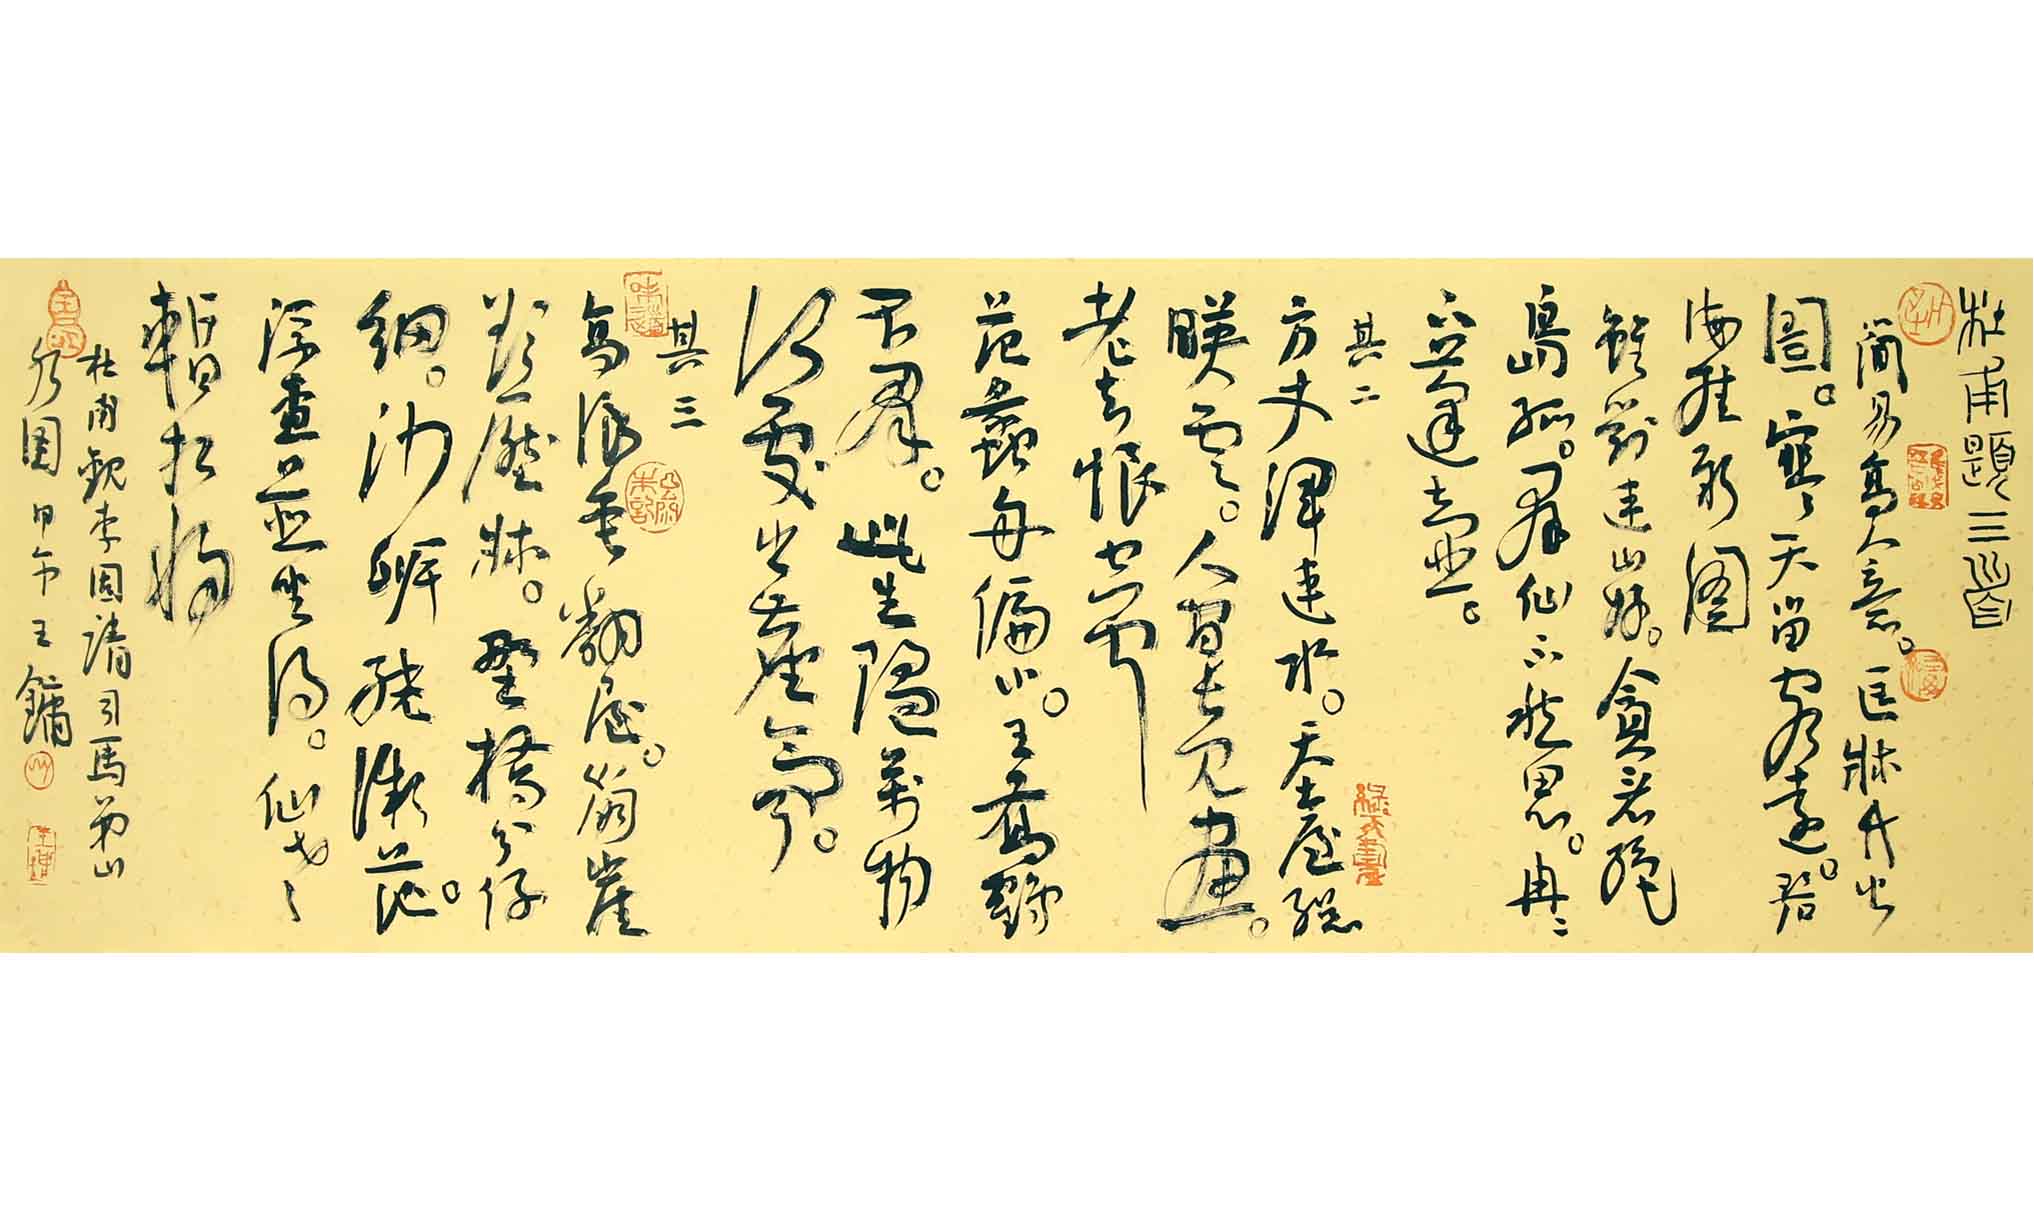 杜甫題三首
簡易高人意。匡牀竹火
圖。寒天留客遠。碧
海挂新圖
雖對連山好。貪看絕
島孤。群仙不愁思。冉〻
下蓬壺。
其二
方丈渾連水。天台總
映雲。人間長見畫。
老去恨空聞
范蠡舟偏小。王喬鶴
不群。此生隨萬物
何處出塵氛。
其三
高浪垂翻屋。崩崖
欲壓牀。野橋分仔
細。沙岸繞微茫。
浮查並坐得。仙老
暫相將
杜甫觀李固請司馬弟山
水圖 甲午 王鏞